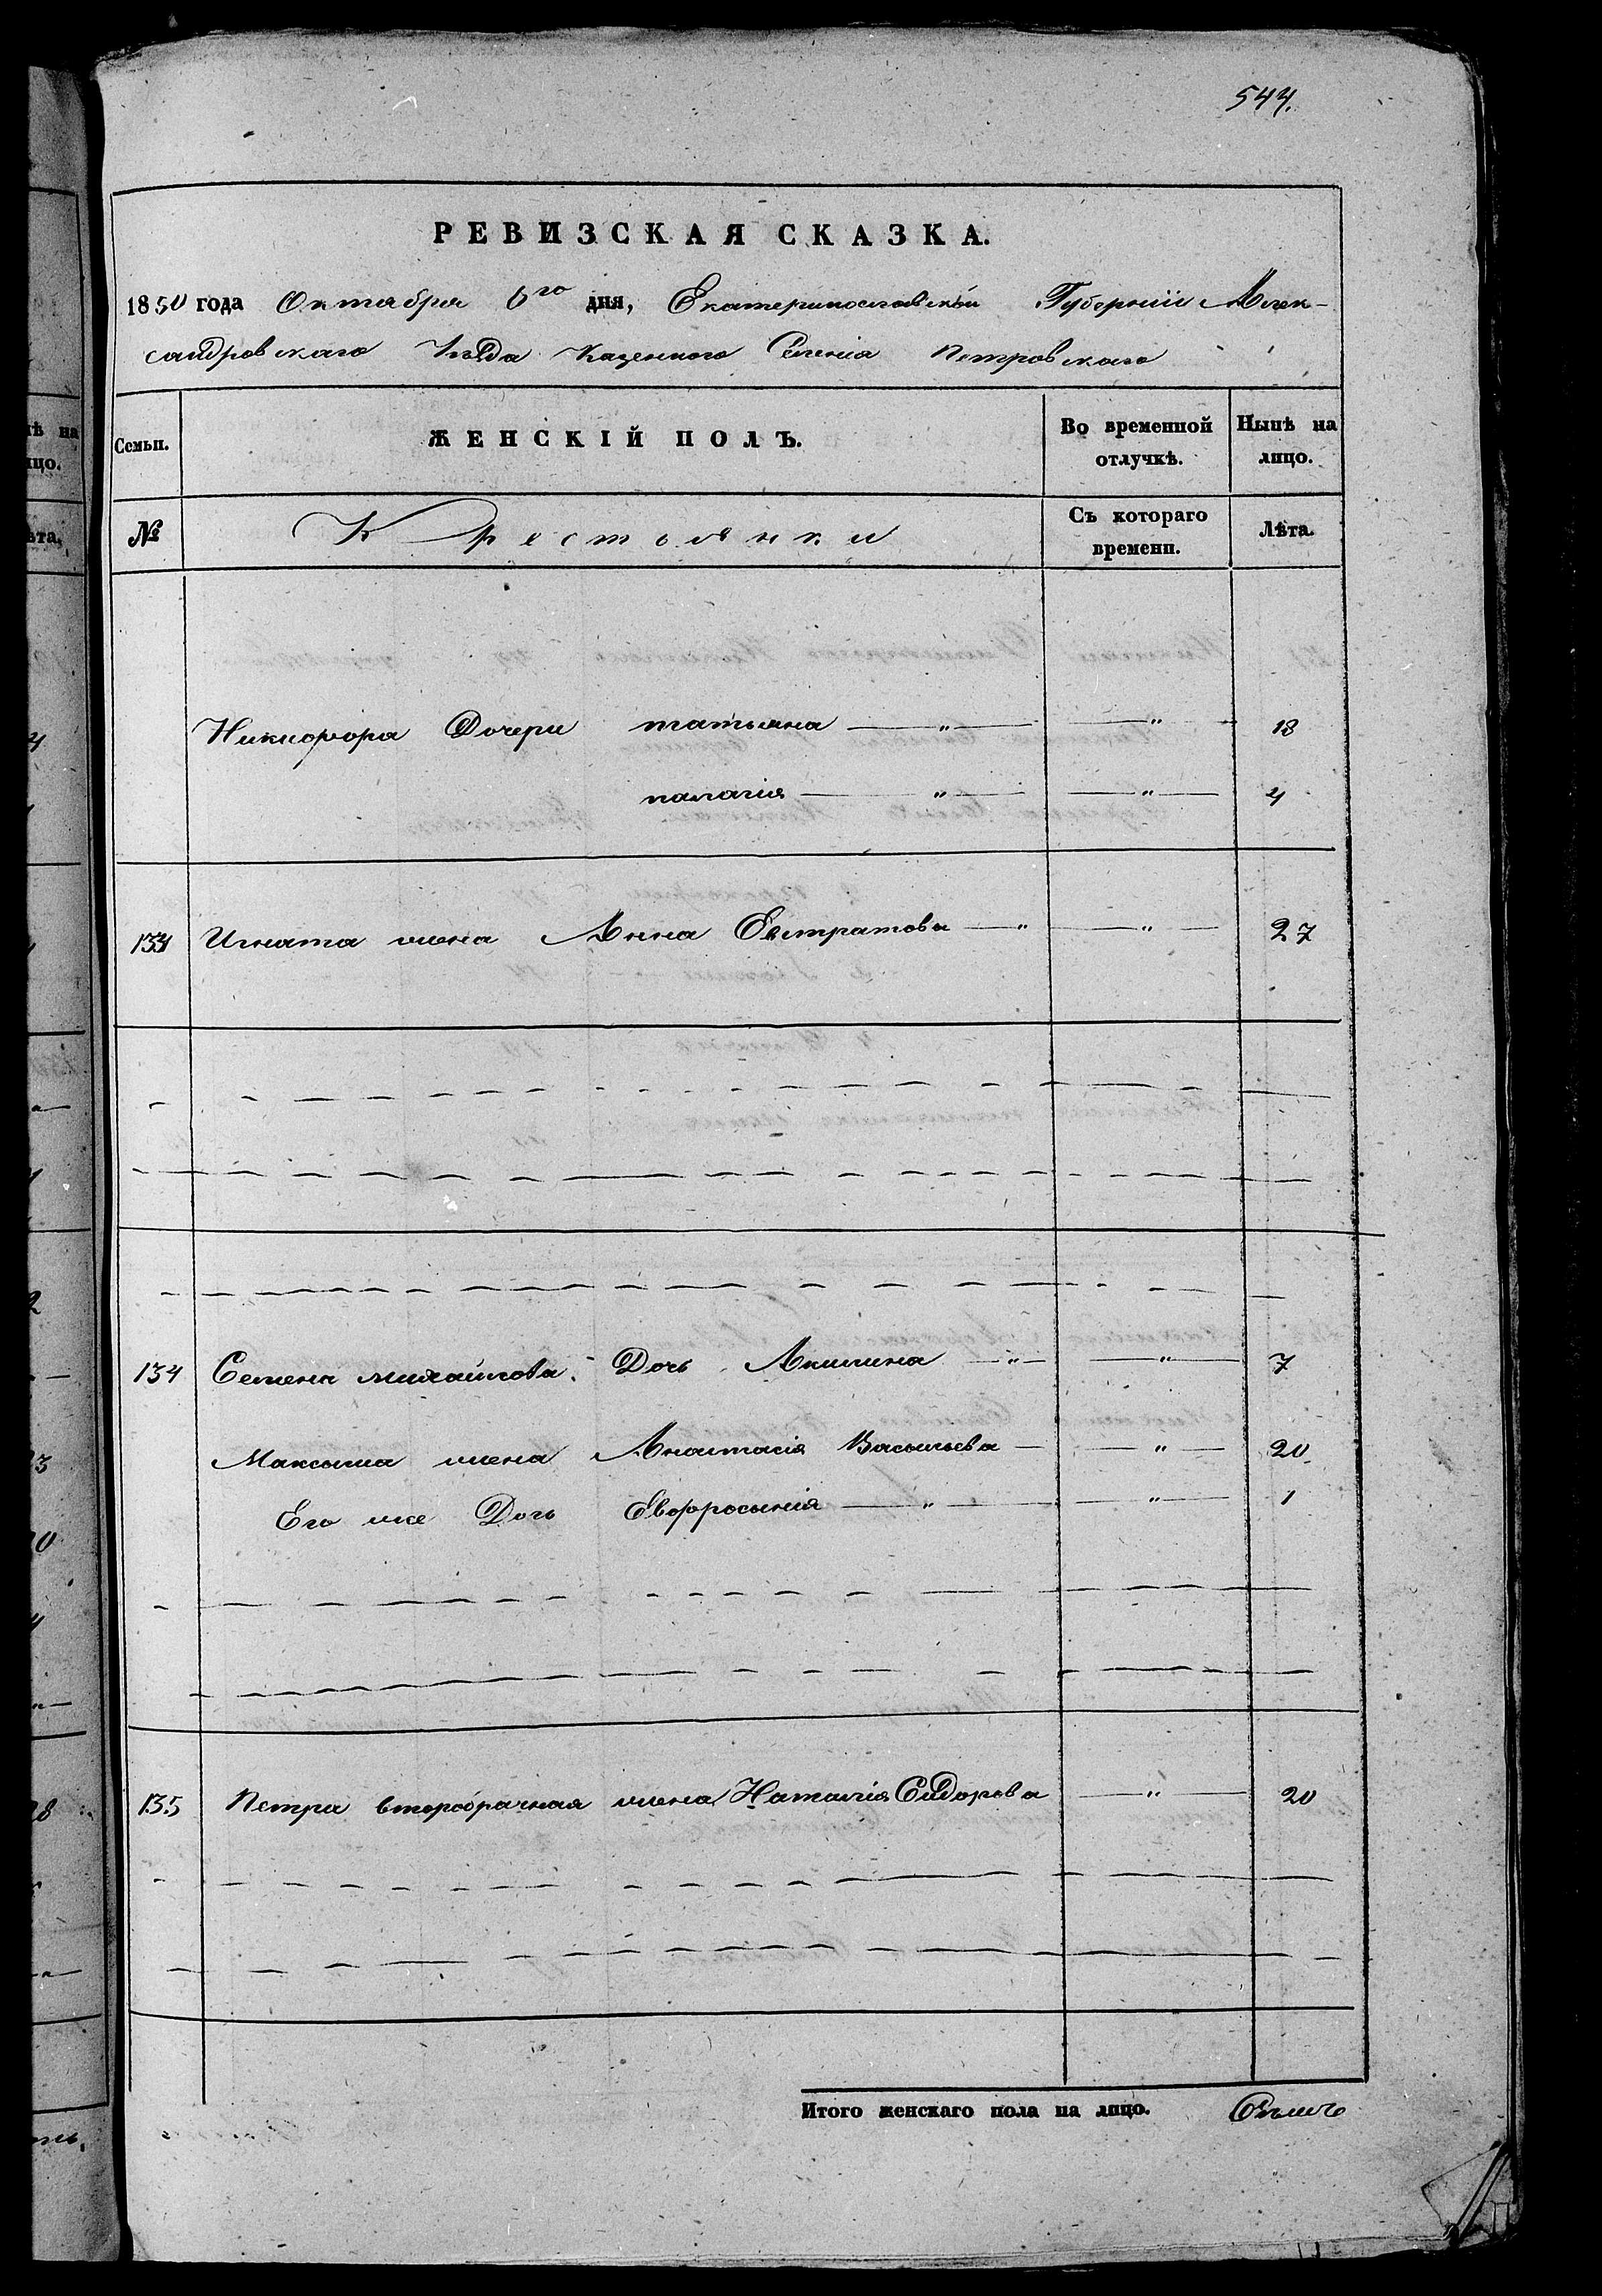 544.
РЕВИЗСКАЯ СКАЗКА.
1850 года Октября 6го дня, Екатеринославской Губернии Алек-
сандровскаго Уезда Казенного Селенія Петровскаго
Семьи. ЖЕНСКІЙ ПОЛЪ. Во временной отлучкѣ. Нынѣ на лицо.
№ Крестьянки Съ котораго времени. Лѣта.
Никифора Дочери татьяна — „ — — „ — 18
палагія — „ — — „ — 4
133 Игната жена Анна Евстратова — „ — „ — 27
134 Семена михайлова Дочь Акилина — „ — — „ — 7
Максыма жена Анастасія Васыльева — — „ — 20
Его же Дочь Евфросынія — „ — — „ — 1
135 Петра второбрачная жена Наталія Сидорова — „ — 20
Итого женскаго пола на лицо. Семь
ѣ на
цо.
ѣта.